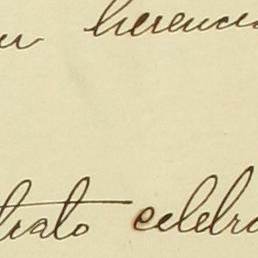 u herencia
trato celebra